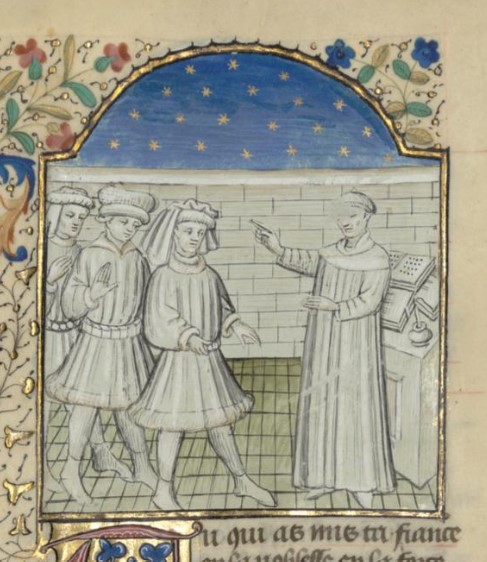 Tu qui as mis ta fiance
en la noblesse en la force